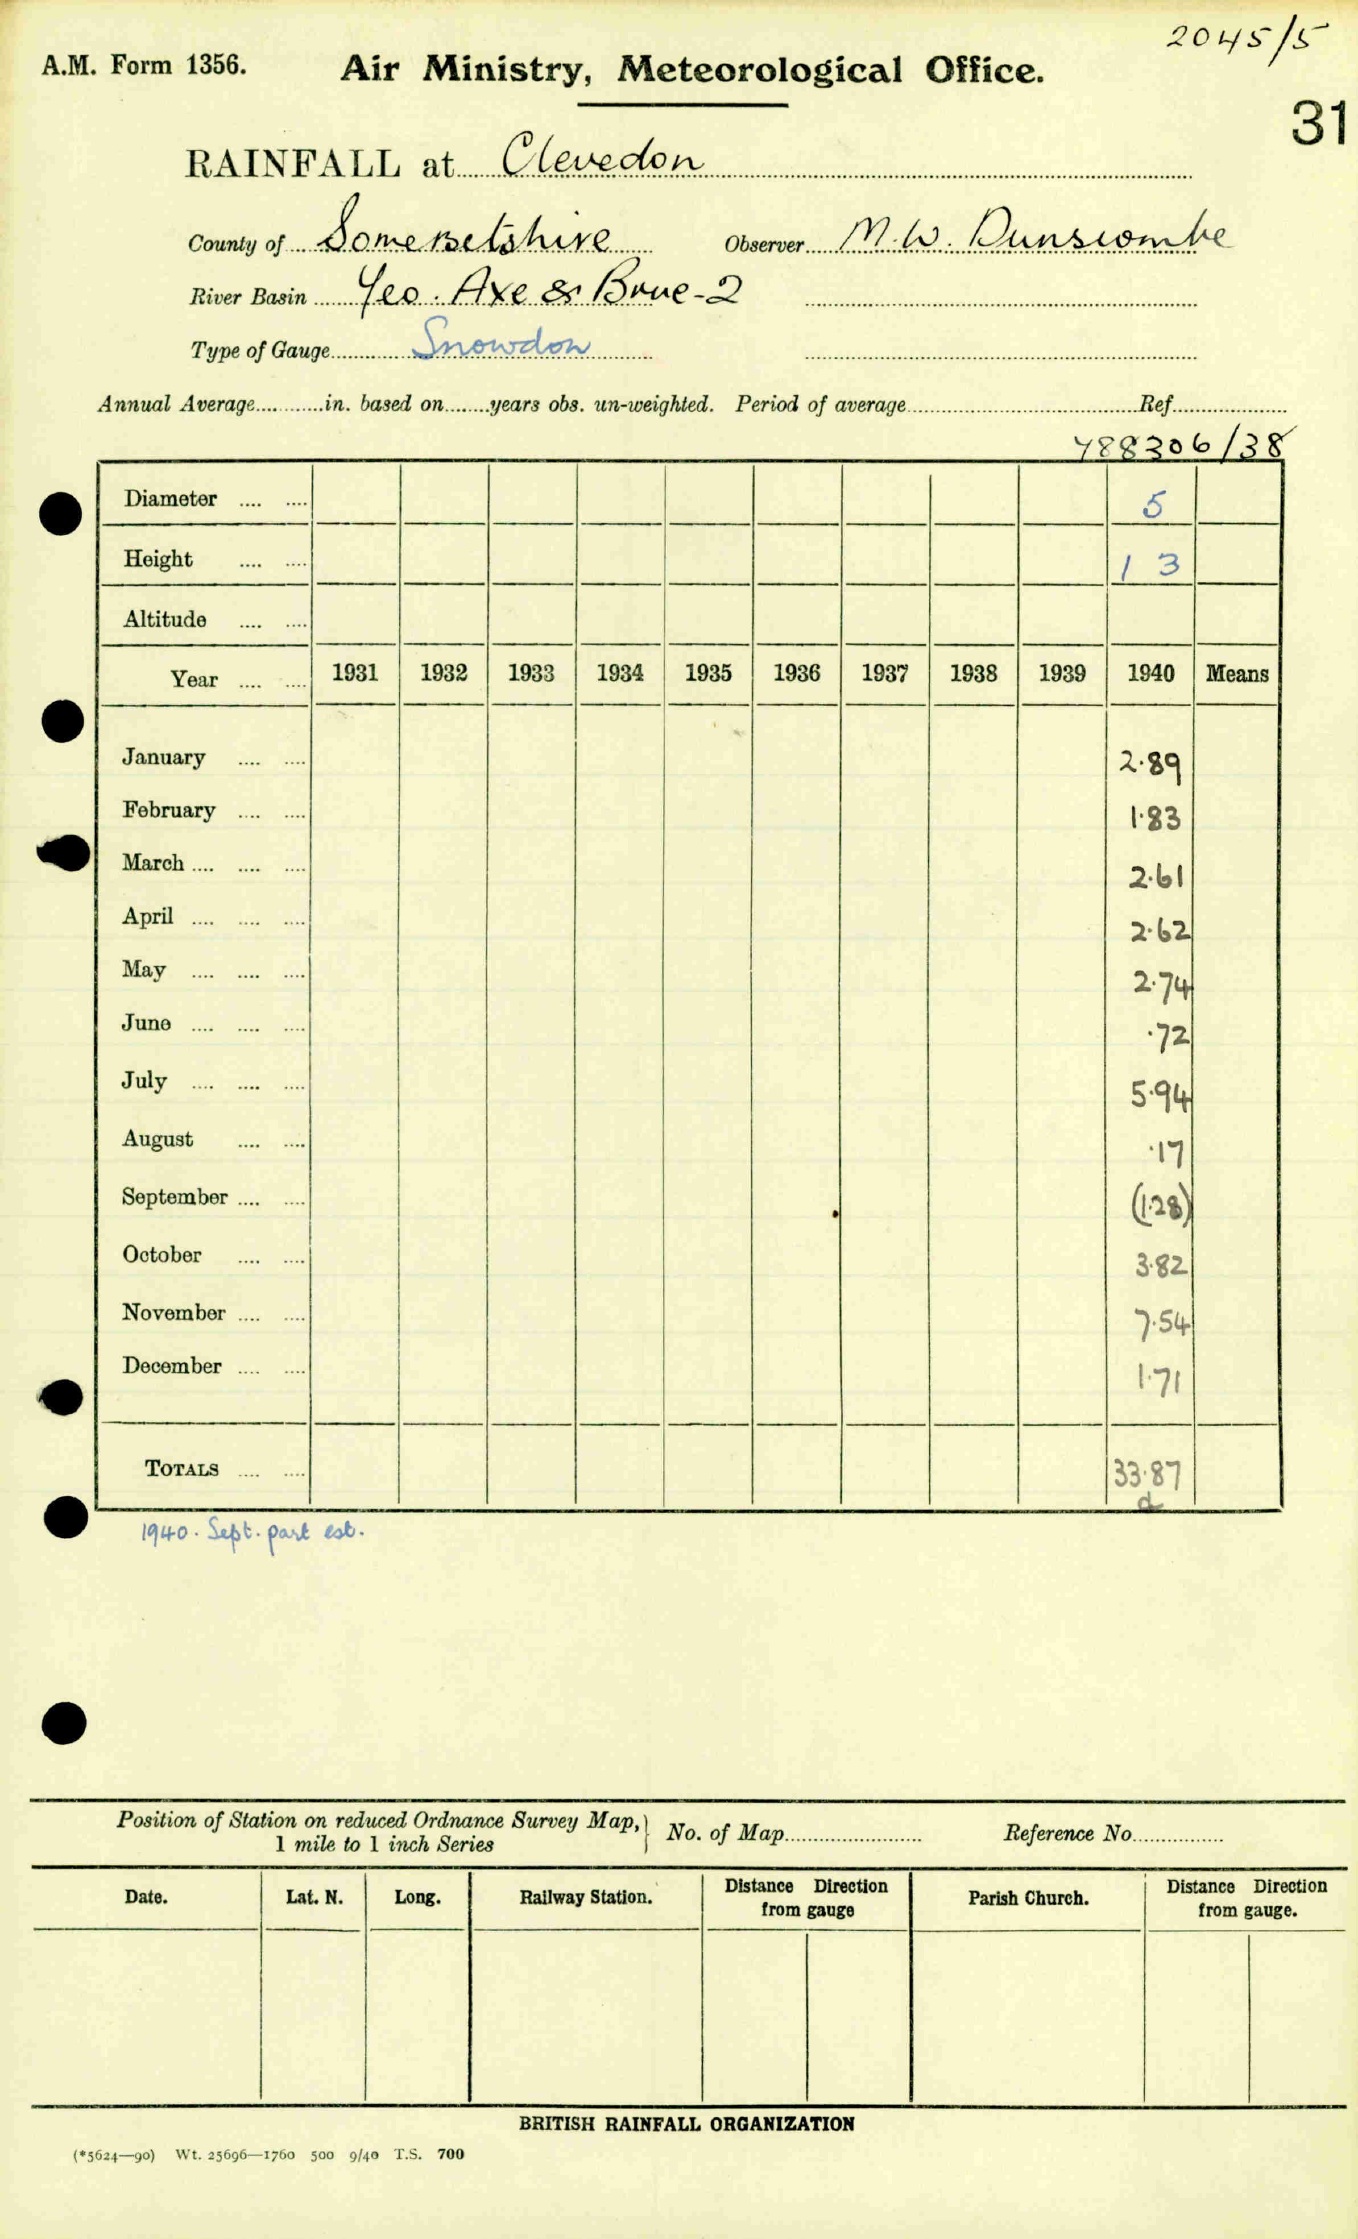 2045/5
A.M. Form 1356. Air Ministry, Meteorological Office.
31
RAINFALL at Clevedon
County of Somersetshire Observer M.W. Dunscombe
River Basin Yeo. Axe & Brue-2
Type of Gauge Snowdon
Annual Average............in. based on........years obs. un-weighted. Period of average..........Ref..........
488306/38
Diameter .... .... 5
Height .... .... 1 3
Altitude .... ....
Year .... .... 1931 1932 1933 1934 1935 1936 1937 1938 1939 1940 Means
January .... .... 2.89
February .... .... 1.83
March .... .... .... 2.61
April .... .... .... 2.62
May .... .... .... 2.74
June .... .... .... .72
July .... .... .... 5.94
August .... .... .17
September .... .... (1.28)
October .... .... 3.82
November .... .... 7.54
December .... .... 1.71
TOTALS .... .... 33.87
1940. Sept. part est.
Position of Station on reduced Ordnance Survey Map, } No. of Map.......... Reference No..........
1 mile to 1 inch Series
Date. Lat. N. Long. Railway Station. Distance Direction from gauge Parish Church. Distance Direction from gauge.
BRITISH RAINFALL ORGANIZATION
(*5624—90) Wt. 25696—1760 500 9/40 T.S. 700